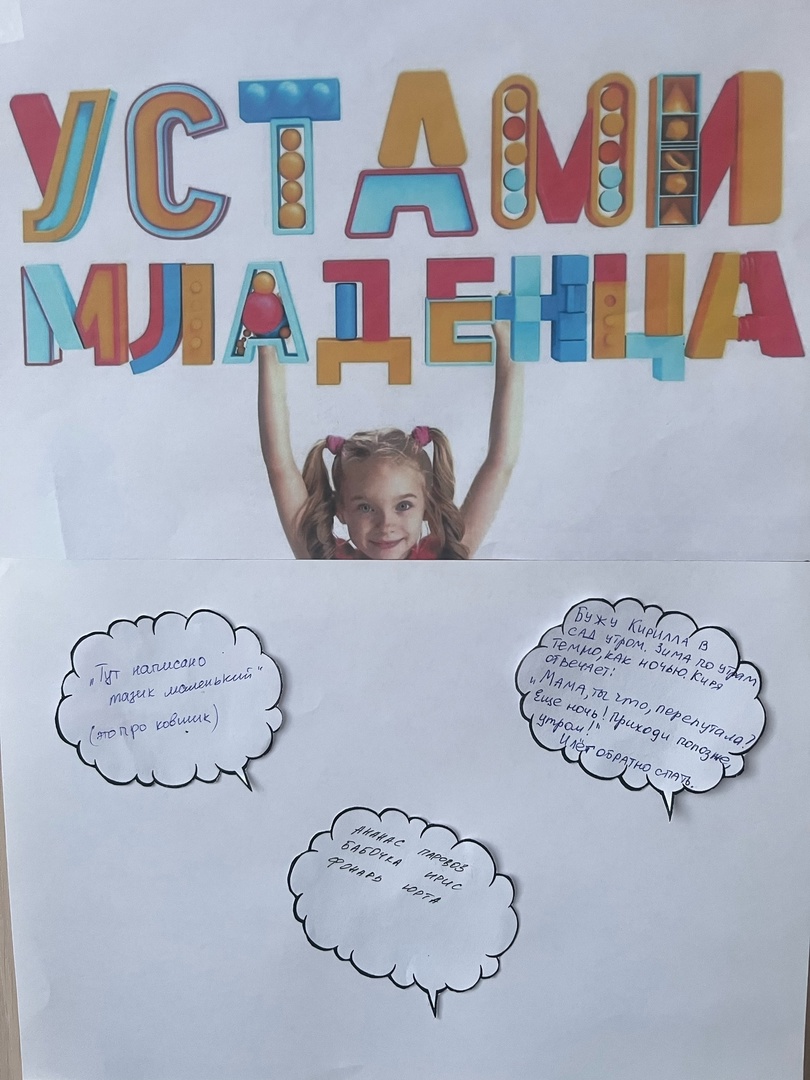 УСТАМИ
МЛАДЕНЦА
„Тут написано
тазик маленький“
(это про ковшик)
Бужу Кирилла в
сад утром. Зима по утрам
темно, как ночью. Киря
отвечает:
„Мама, ты что, перепутала?
Еще ночь! Приходи попозже,
утром!"
Идёт обратно спать.
АНАНАС ПАРОВОЗ
БАБОЧКА ИРИС
ФОНАРЬ ЮРТА